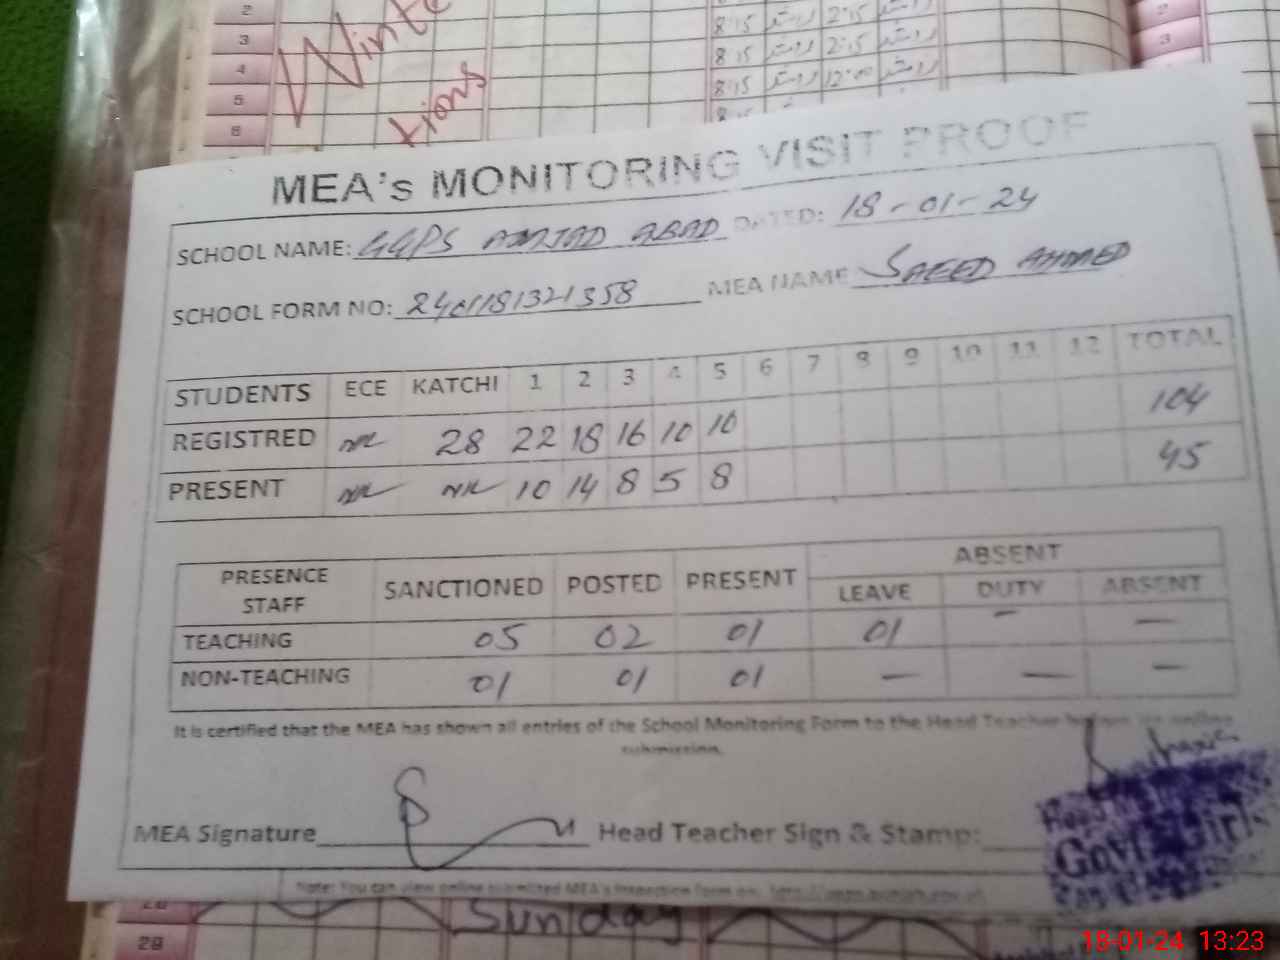 2
3
4
5
6
Winte
tions
8:15 2:15
8:15 2:15
8:15 12:00
8:15
2
3
MEA's MONITORING VISIT PROOF
SCHOOL NAME: GGPS AMJAD ABAD DATED: 18-01-24
SCHOOL FORM NO: MEA NAME SAEED AHMED
STUDENTS ECE KATCHI 1 2 3 4 5 6 7 8 9 10 11 12 TOTAL
REGISTRED NIL 28 22 18 16 10 10 104
PRESENT NIL NIL 10 14 8 5 8 45
PRESENCE STAFF SANCTIONED POSTED PRESENT ABSENT
LEAVE DUTY ABSENT
TEACHING 05 02 01 01 - -
NON-TEACHING 01 01 01 - - -
It is certified that the MEA has shown all entries of the School Monitoring Form to the Head Teacher before its online
submission.
MEA Signature Head Teacher Sign & Stamp:
Govt Girls
Note: You can view online submitted MEA's inspection form on:
28
Sunday
29
18-01-24 13:23